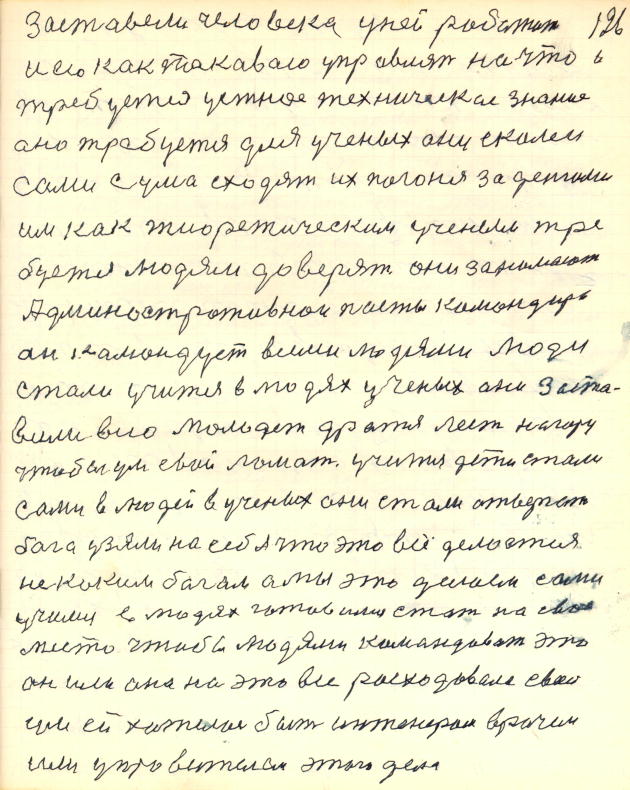 Заставели человека у ней работат 126
и его как такаваго управлят на что и
требуется устное техническае знание
ано требуется для ученых они сколем
сами сума сходят их погоня за денгами
им как тиоретическим ученым тре
буется людям доверят они занимают
Админостротивнои посты командира
он камондует всими людями люди
стали учится в людях ученых они заста-
вили его молодет дратя лест нагору
чтобы ум свой ломат. учится дети стали
сами в людей в ученых они стали отвергат
бога узяли на себя что это всё делается
не каким багам а мы это делаем сами
учими в людях готовими стат на свое
место чтобы людями командоват это
он или она на это все росходовала свой
ум ей хателос быт интенером врачем
или управителем этого дела